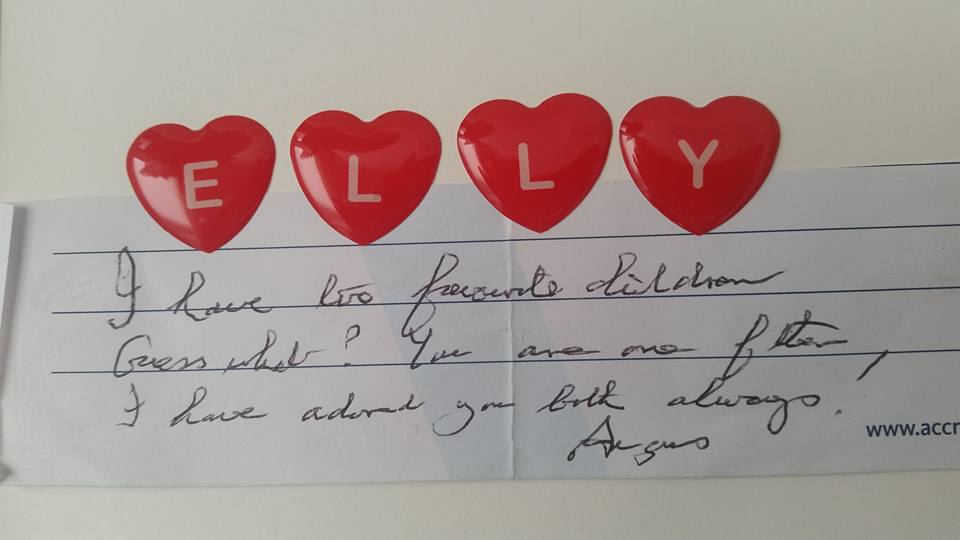 ELLY
I have two favourite children
Guess what? You are one of them,
I have adored you both always.
www.accr
Angus